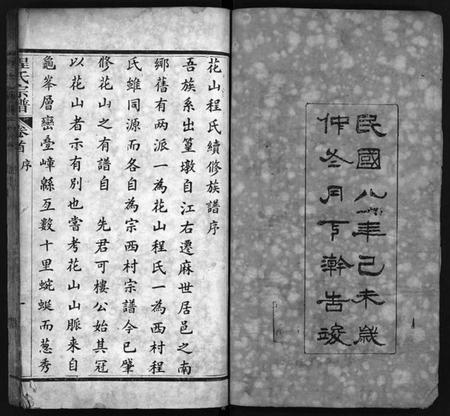 民國八年己未歲
仲冬月下澣告竣
花山程氏續修族譜序
吾族系出篁墩自江右遷麻世居邑之南
鄉舊有兩派一為花山程氏一為西村程
氏雖同源而各自為宗西村宗譜今已肇
修花山之有譜自　先君可樓公始其冠
以花山者示有別也嘗考花山山脈來自
龜峯層巒疊嶂緜亙數十里蜿蜒而葱秀
程氏宗譜
卷首
序
一